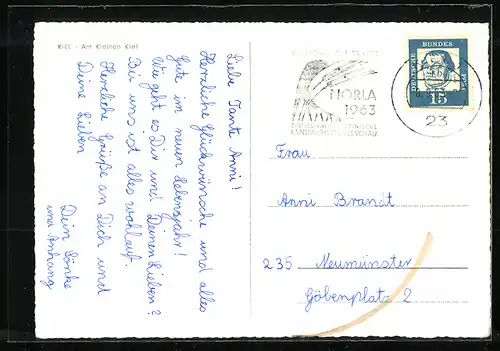 KIEL - Am Kleinen Kiel
Liebe Tante Anni!
Herzliche Glückwünsche und alles
Gute im neuen Lebensjahr!
Wie geht es Dir und Deinen Lieben?
Bei uns ist alles wohlauf.
Herzliche Grüße an Dich und
Deine Lieben
Dein Sönke
und Anhang
NORLA
1963
LANDWIRTSCHAFTSSCHAU
DEUTSCHE
BUNDES
POST
15
23
Frau
Anni Brandt
235 Neumünster
Göbenplatz 2